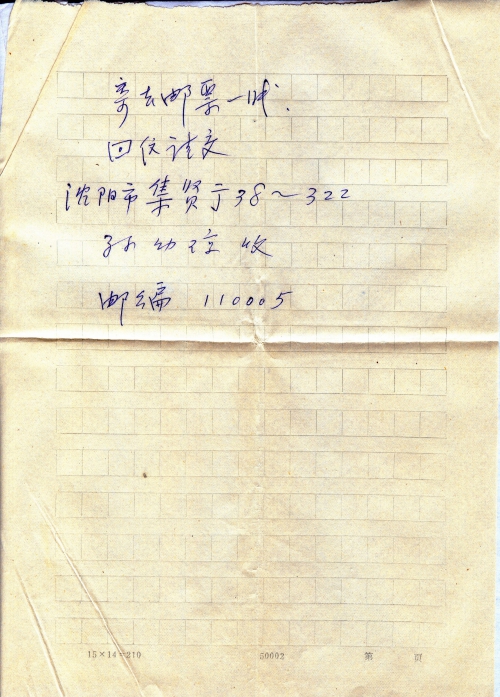 寄去邮票一
回信请交
沈阳市集贤 38～322
孙幼 收
邮编 110005
15×14=210 50002 第 页